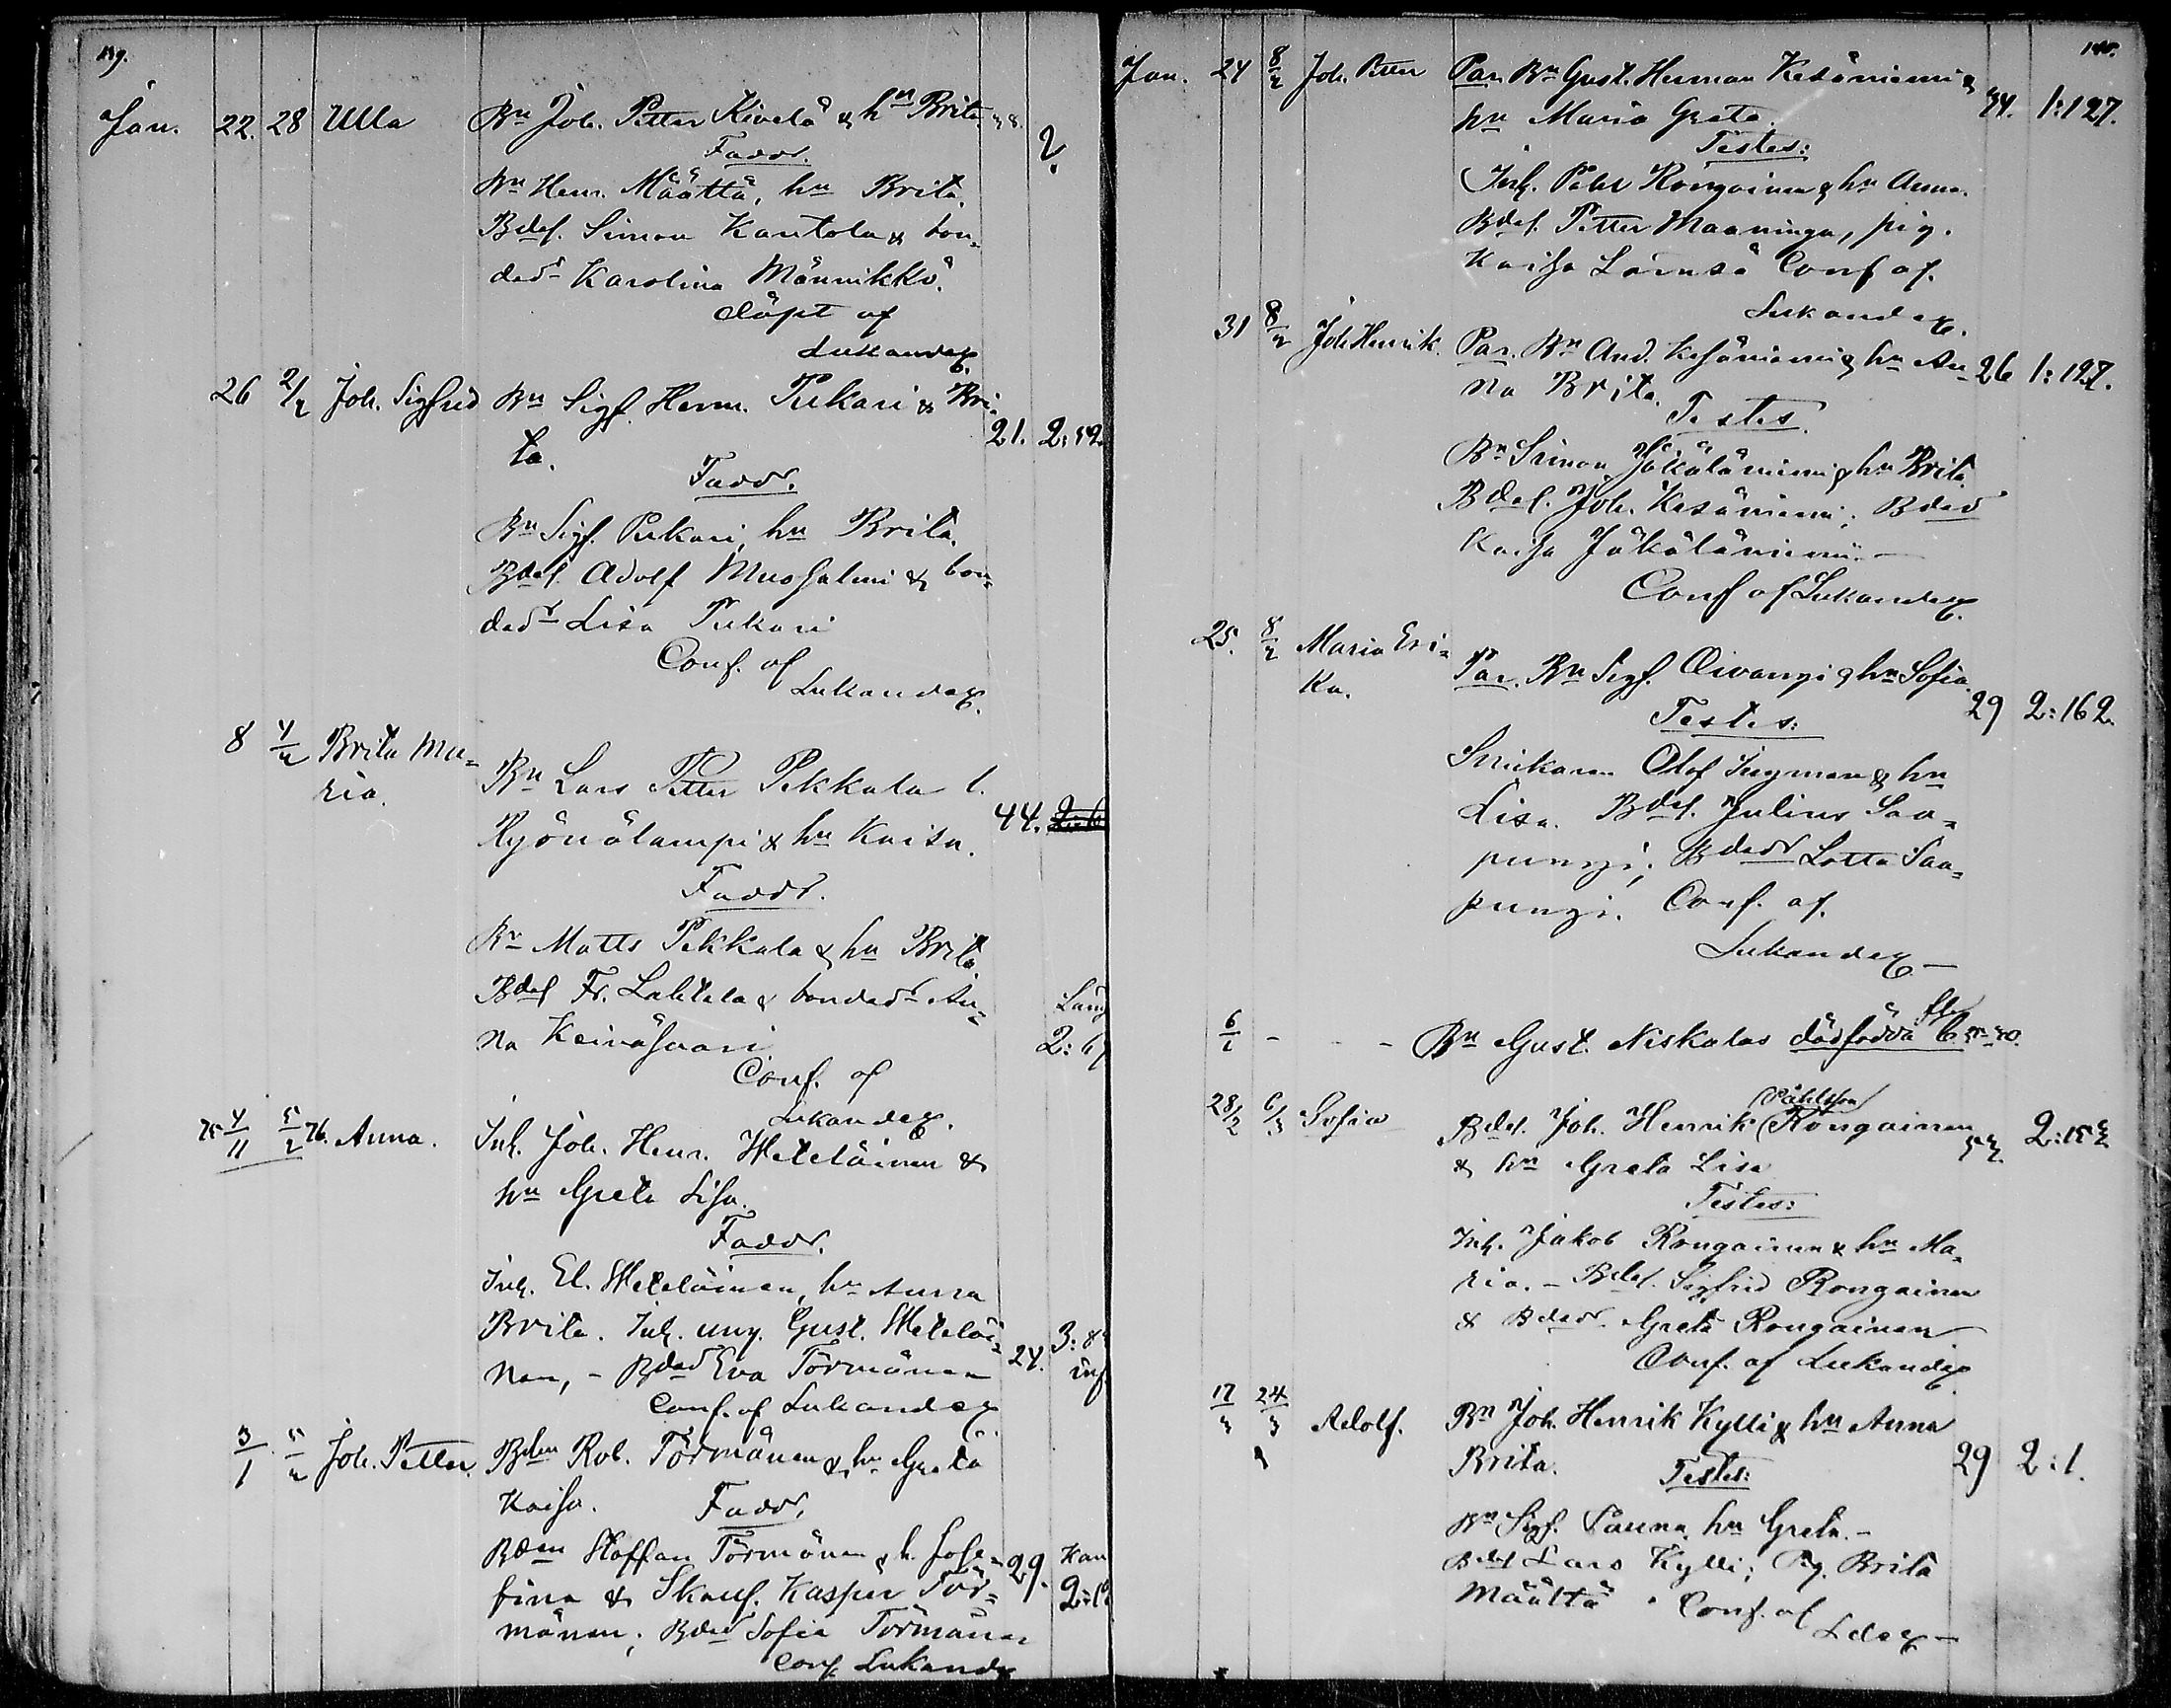 139.
Jan. 22. 28 Ulla Bn Joh. Petter Kivelä & hn Brita 38. 2.
Faddr.
Bn Henr. Määttä, hn Brita.
Bdes. Simon Kantola & bon-
dedr Karolina Männikkö.
döpt af
Lukander.
26 2/2 Joh. Sigfrid Bn Sigf. Herm. Pukari & Bri-
ta. 21. 2:52.
Faddr.
Bn Sigf. Pukari, hn Brita.
Bdes. Adolf Mursalmi & bon-
dedr Lisa Pukari
Conf. af
Lukander.
8 4/2 Brita Ma-
ria. Bn Lars Petter Pekkala l.
Ryönälampi & hn Kaisa. 44.
Faddr.
Bn Matts Pekkala & hn Brita
Bdes Fr. Lahtela & bondedr An-
na Keinäsaari 2:6
Conf. af
Lukander.
75 4/11 5/2 76. Anna. Inh. Joh. Henr. Weteläinen &
hn Greta Lisa.
Faddr.
Inh. El. Weteläinen, hn Anna
Brita. Inh. ung. Gust. Weteläi-
nen, - Bded Eva Törmänen 24. 3:8 inh
Conf. af Lukander
3/1 5/2 Joh. Petter. Bden Rob. Törmänen & hn Greta
Kaisa. Faddr.
Bden Staffan Törmänen & h. Jose- 29. Kan
fina & Skarf. Kasper Tör- 2:1
mänen; Bded Sofia Törmänen
Conf Lukander
140.
Jan. 24 8/2 Joh. Petter Par. Bn Gust. Herman Kesäniemi & 34. 1:127.
hn Maria Greta.
Testes:
Inh. Påhl Rongainen & hn Anna.
Bdes. Petter Maaninga, pig.
Kaisa Lämsä Conf af.
Lukander.
31 8/2 Joh Henrik. Par. Bn And. Kesäniemi & hn An- 26 1:127.
na Brita.
Testes
Bn Simon Jäkäläniemi & hn Brita
Bdes. Joh. Kesäniemi; Bded
Kaisa Jäkäläniemi. -
Conf af Lukander.
25. 8/2 Maria Eri-
ka. Par. Bn Sigf. Oivangi & hn Sofia
29 2:162.
Testes:
Snickaren Olof Ingman & hn
Lisa. Bdes. Julius Saa-
pungi; Bdedr Lotta Saa-
pungi. Conf. af.
Lukander -
6/2 - - - Bn Gust. Niskalas dödfödda
28/2 6/3 Sofia Bdes. Joh. Henrik (Påhlsson) Rongainen 33. 2:153
& hn Greta Lisa
Testes:
Inh. Jakob Rongainen & hn Ma-
ria. - Bdes. Sigfrid Rongainen
& Bdedr. Greta Rongainen
Conf. af Lukander
17/3 24/3 Adolf. Bn Joh. Henrik Kylli & hn Anna
Brita. 29 2:1.
Testes:
Bn Sigf. Sauna, hn Greta. -
Bdes Lars Kylli; Pig. Brita
Määttä. Conf. af
Lder -